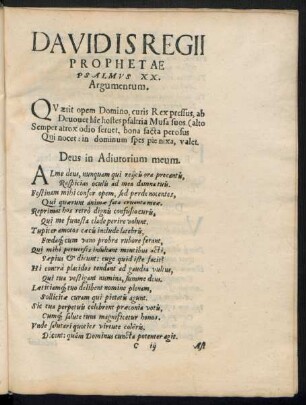 DAVIDIS REGII
PROPHETAE
PSALMVS XX.
Argumentum.
QVærit opem Domino, curis Rex pressus, ab
Deuouet hic hostes psaltria Musa suos. (alto
Semper atrox odio seruet, bona facta perosus
Qui nocet: in dominum spes pie nixa, valet.
Deus in Adiutorium meum.
ALme deus, nunquam qui reijcis ora precantū,
Respicias oculis ad mea damna tuis.
Festinam mihi confer opem, sed perde nocentes,
Qui quærunt animæ fata
Reprimat hos retrò dignis confusio curis,
Qui me funesta clade perire volunt.
Turpiter auctos cæcū include latebris,
Fœdaq́; cum vano probra rubore ferant,
Qui mihi peruersis insultant mentibus acti,
Sæpius & dicunt: euge quid iste facit?
At contra placidos tendant ad gaudia vultus,
Qui tua vestigant numina, summe deus.
Lætitiamq́; tuo delibent nomine plenam,
Sollicita curam qui pietatis agunt.
Sic tua perpetuis celebrent præconia votis,
Cumq́; salute tuus magnificetur honos.
Vnde salutari quoties virtute coleris,
Dicent: quàm Dominus cuncta potenter agit.
C ij
Ast